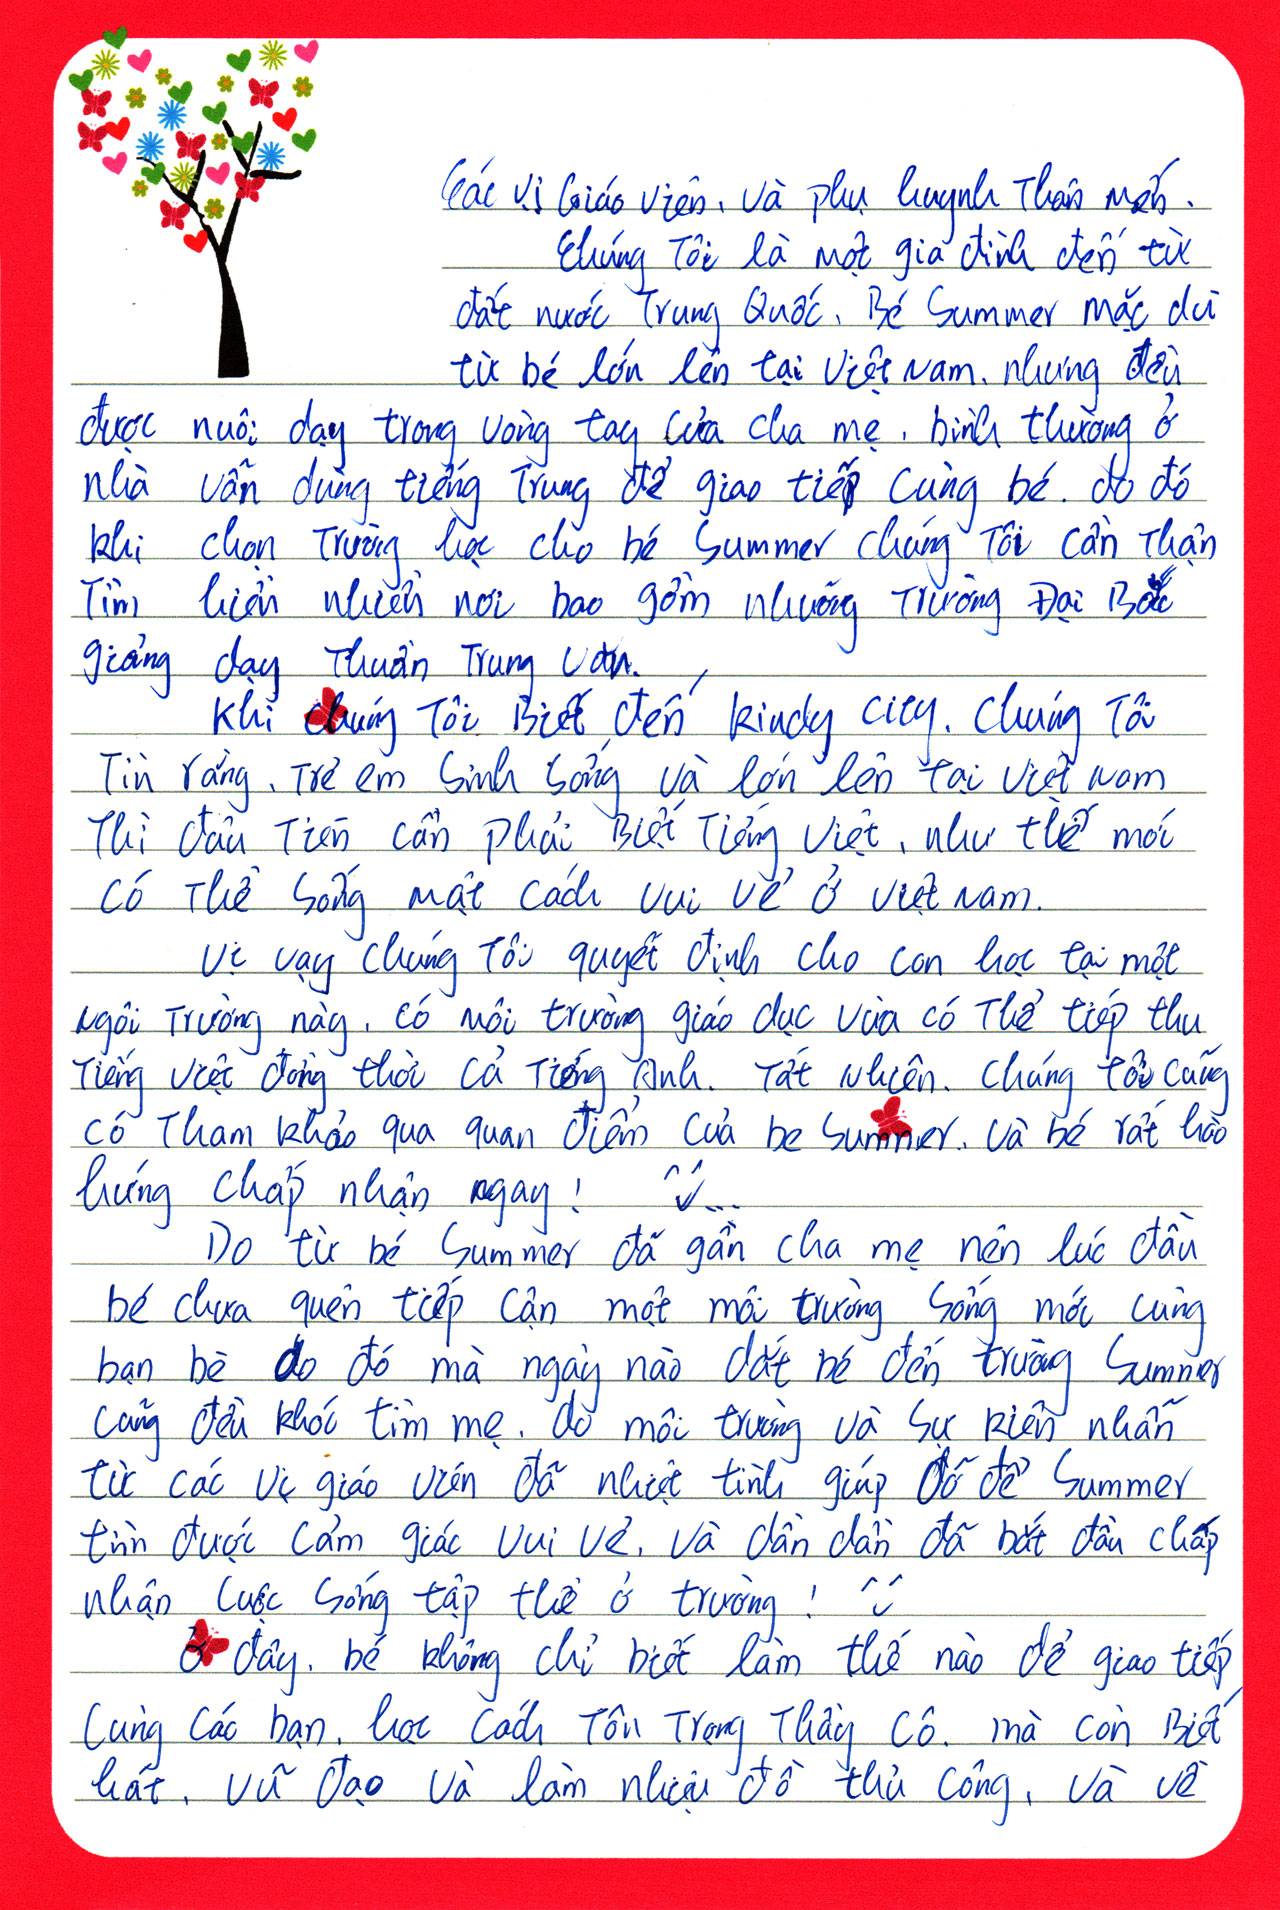 Các vị Giáo viên, và phụ huynh thân mến.
Chúng Tôi là một gia đình đến từ
đất nước Trung Quốc, Bé Summer mặc dù
từ bé lớn lên tại Việt Nam, nhưng đều
được nuôi dạy trong vòng tay của cha mẹ, bình thường ở
nhà vẫn dùng tiếng Trung để giao tiếp cùng bé. do đó
khi chọn Trường học cho bé Summer chúng Tôi cẩn Thận
Tìm hiểu nhiều nơi bao gồm những Trường Đại Bắc
giảng dạy Thuần Trung văn.
Khi chúng Tôi Biết đến kindy city, Chúng Tôi
Tin rằng, Trẻ em sinh sống và lớn lên tại Việt Nam
Thì đầu Tiên cần phải Biết Tiếng Việt, như thế mới
có Thể sống một cách vui vẻ ở Việt Nam.
Vì vậy chúng Tôi quyết định cho con học tại một
ngôi Trường này, có môi trường giáo dục vừa có Thể tiếp thu
Tiếng Việt đồng thời cả Tiếng Anh. Tất Nhiên, Chúng tôi cũng
có Tham khảo qua quan điểm của be Summer, và bé rất hào
hứng chấp nhận ngay!
Do từ bé Summer đã gần cha mẹ nên lúc đầu
bé chưa quen tiếp cận một môi trường sống mới cùng
bạn bè do đó mà ngày nào dắt bé đến trường Summer
cũng đều khóc tìm mẹ, do môi trường và sự kiên nhẫn
từ các vị giáo viên đã nhiệt tình giúp đỡ để Summer
tìm được cảm giác vui vẻ, và dần dần đã bắt đầu chấp
nhận cuộc sống tập thể ở trường!
Ở đây, bé không chỉ biết làm thế nào để giao tiếp
Cùng các bạn, học cách Tôn Trọng Thầy Cô, mà còn Biết
hát, vũ đạo và làm nhiều đồ thủ công, và về